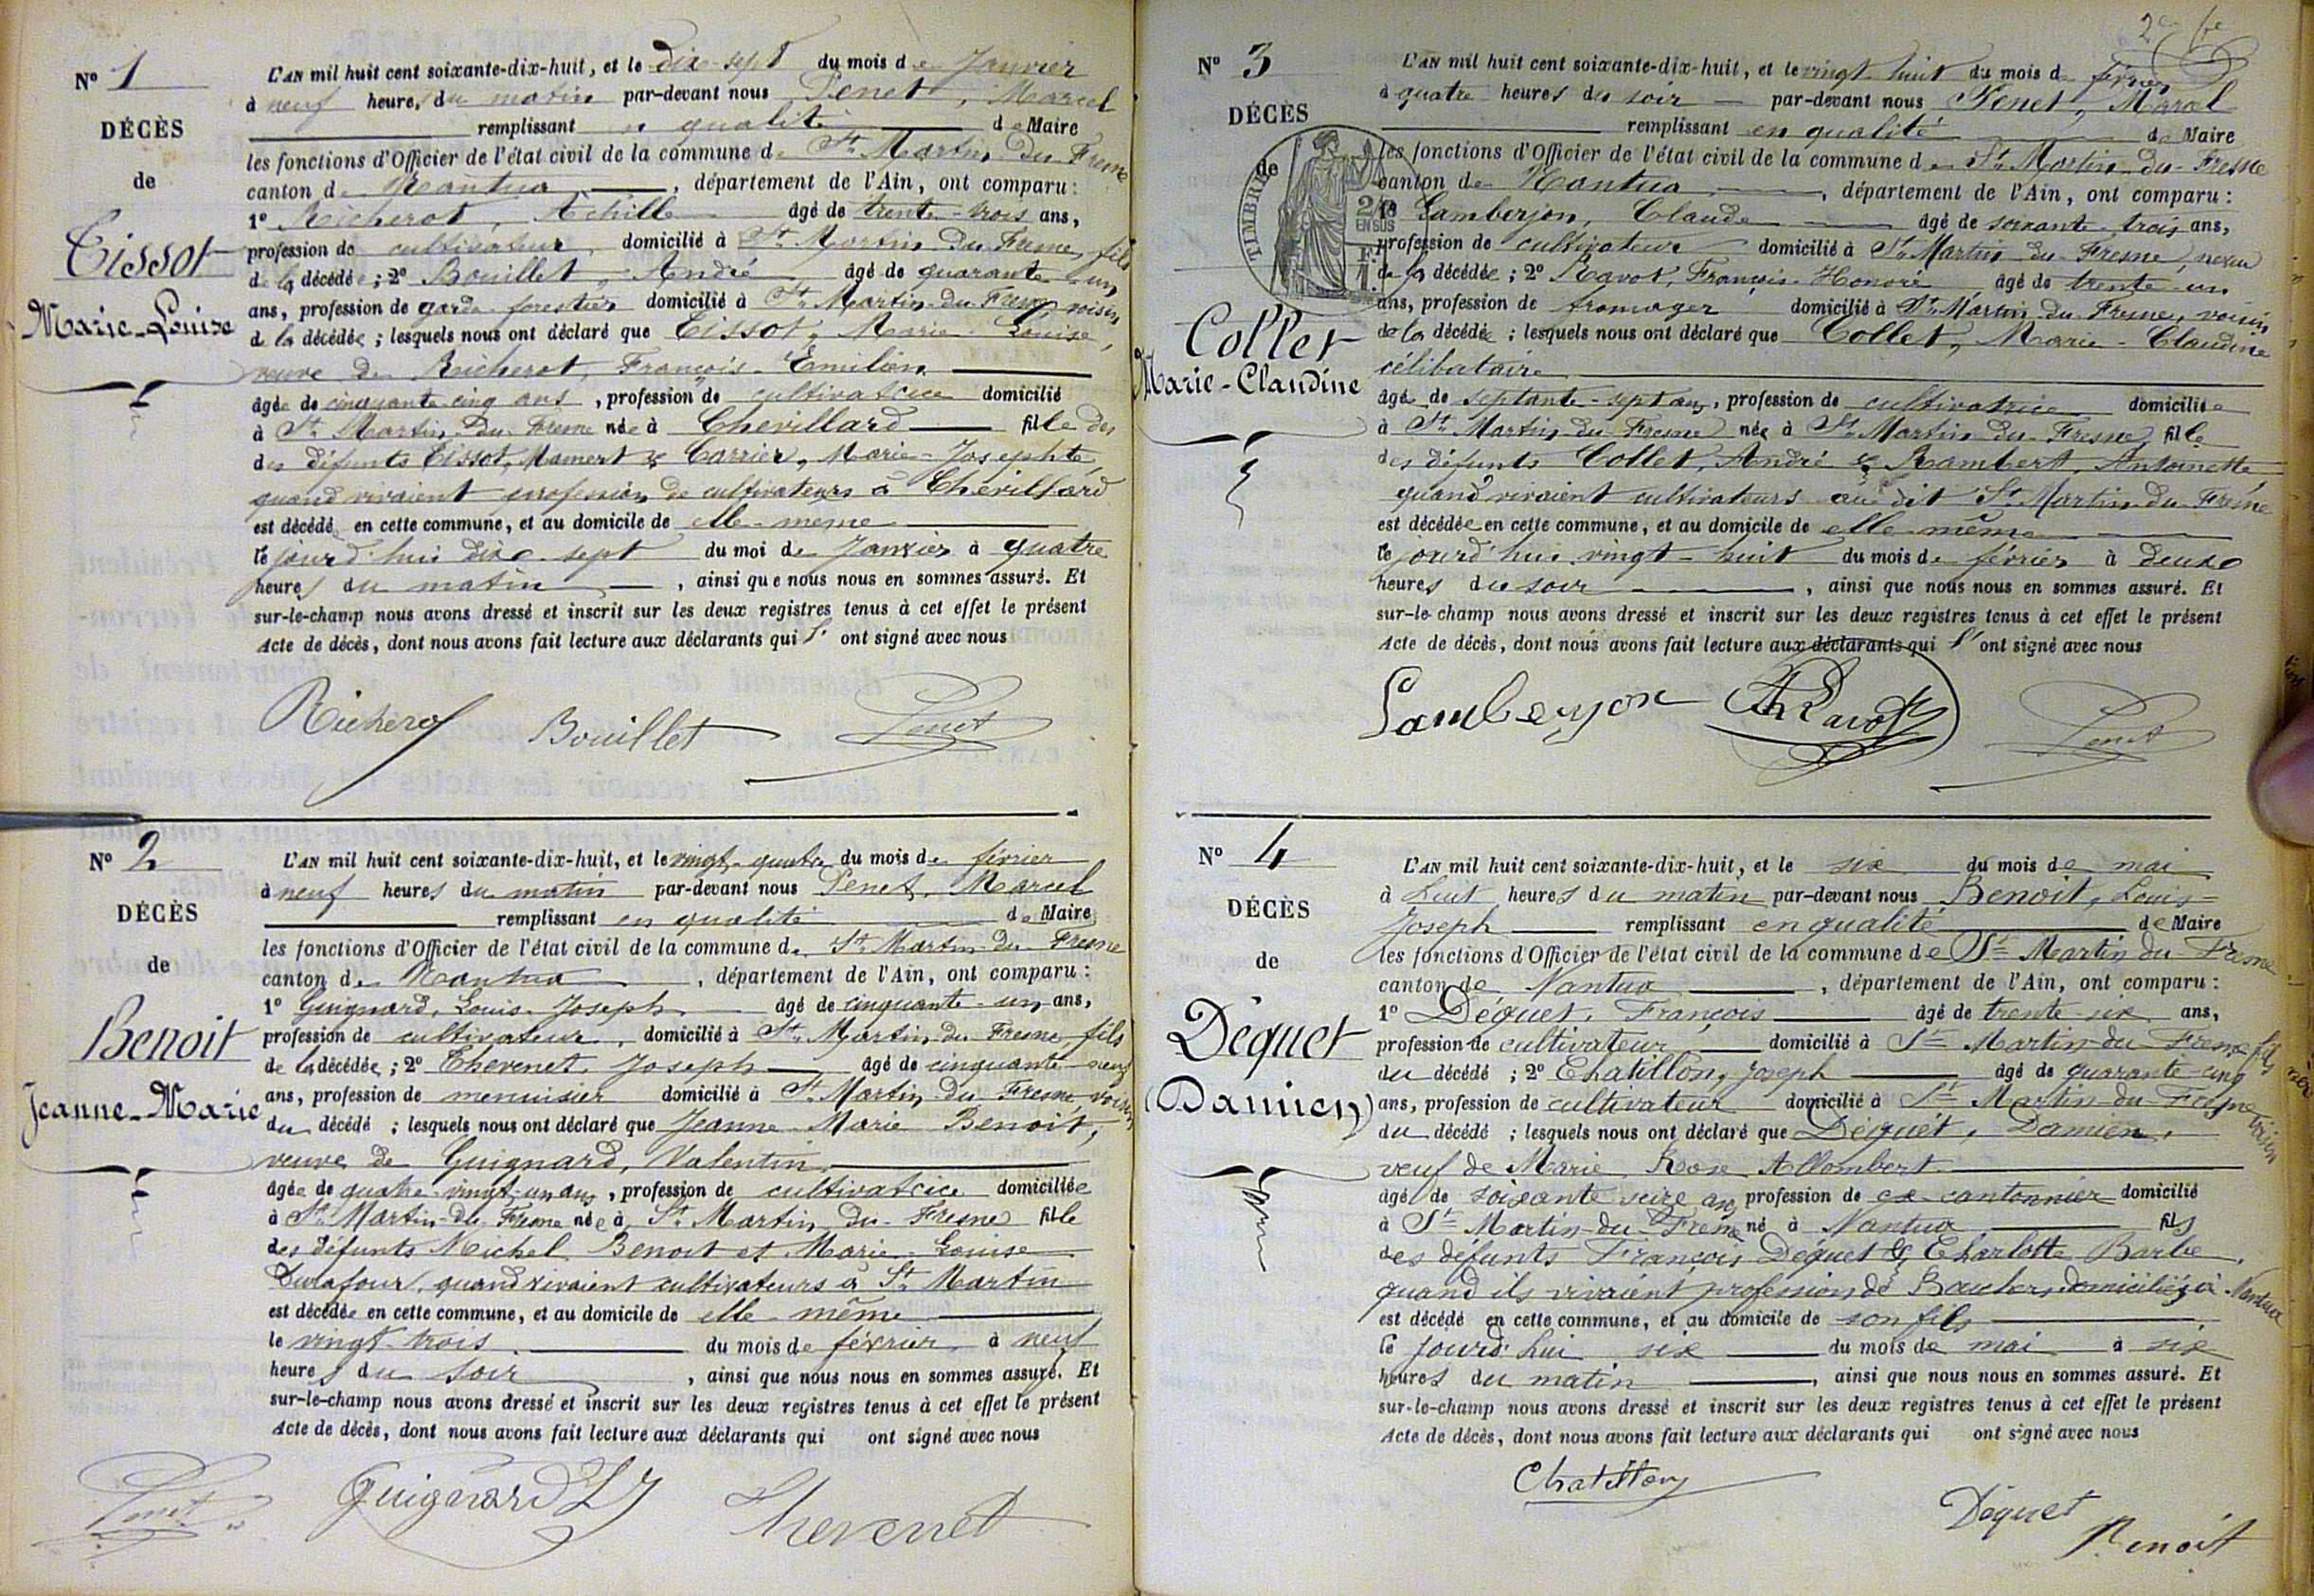 N° 1
DÉCÈS
de
Tissot
Marie-Louise
L'AN mil huit cent soixante-dix-huit, et le dix-sept du mois de Janvier
à neuf heures du matin par-devant nous Penet, Marcel
remplissant en qualité de Maire
les fonctions d'Officier de l'état civil de la commune de St Martin-du-Fresne
canton de Nantua, département de l'Ain, ont comparu :
1° Richerot, Achille âgé de trente-trois ans,
profession de cultivateur, domicilié à St Martin-du-Fresne, fils
de la décédée ; 2° Bouillet, André âgé de quarante-un
ans, profession de garde-forestier domicilié à St Martin-du-Fresne, voisin
de la décédée ; lesquels nous ont déclaré que Tissot, Marie-Louise,
veuve de Richerot, François-Emilien
âgée de cinquante-cinq ans, profession de cultivatrice domicilié
à St Martin-du-Fresne née à Chevillard fille des
des défunts Tissot, Mamert & Carrier, Marie-Josephte,
quand vivaient profession de cultivateurs à Chevillard
est décédée en cette commune, et au domicile de elle-même
le jourd'hui dix-sept du moi de Janvier à quatre
heures du matin, ainsi que nous nous en sommes assuré. Et
sur-le-champ nous avons dressé et inscrit sur les deux registres tenus à cet effet le présent
Acte de décès, dont nous avons fait lecture aux déclarants qui l' ont signé avec nous
Richerot Bouillet Penet
N° 2
DÉCÈS
de
Benoit
Jeanne-Marie
L'AN mil huit cent soixante-dix-huit, et le vingt-quatre du mois de février
à neuf heures du matin par-devant nous Penet, Marcel
remplissant en qualité de Maire
les fonctions d'Officier de l'état civil de la commune de St Martin-du-Fresne
canton de Nantua, département de l'Ain, ont comparu :
1° Guignard, Louis-Joseph âgé de cinquante-un ans,
profession de cultivateur, domicilié à St Martin-du-Fresne, fils
de la décédée ; 2° Thevenet, Joseph âgé de cinquante-neuf
ans, profession de menuisier domicilié à St Martin-du-Fresne, voisin
du décédé ; lesquels nous ont déclaré que Jeanne-Marie Benoit,
veuve de Guignard, Valentin
âgée de quatre-vingt-un ans, profession de cultivatrice domiciliée
à St Martin-du-Fresne née à St Martin-du-Fresne fille
des défunts Michel Benoit et Marie-Louise
Durafour, quand vivaient cultivateurs à St Martin
est décédée en cette commune, et au domicile de elle-même
le vingt-trois du mois de février à neuf
heures du soir, ainsi que nous nous en sommes assuré. Et
sur-le-champ nous avons dressé et inscrit sur les deux registres tenus à cet effet le présent
Acte de décès, dont nous avons fait lecture aux déclarants qui ont signé avec nous
Penet Guignard LJ Thevenet
N° 3
DÉCÈS
de
TIMBRE
Collet
Marie-Claudine
L'AN mil huit cent soixante-dix-huit, et le vingt-huit du mois de février
à quatre heures du soir par-devant nous Penet, Marcel
remplissant en qualité de Maire
les fonctions d'Officier de l'état civil de la commune de St Martin-du-Fresne
canton de Nantua, département de l'Ain, ont comparu :
1° Lamberjon, Claude âgé de soixante-trois ans,
profession de cultivateur domicilié à St Martin-du-Fresne, neveu
de la décédée ; 2° Ravot, François-Honoré âgé de trente-un
ans, profession de fromager domicilié à St Martin-du-Fresne, voisin
de la décédée ; lesquels nous ont déclaré que Collet, Marie-Claudine
célibataire
âgée de septante-sept ans, profession de cultivatrice domiciliée
à St Martin-du-Fresne née à St Martin-du-Fresne, fille
des défunts Collet, André & Rambert, Antoinette
quand vivaient cultivateurs au dit St Martin-du-Fresne
est décédée en cette commune, et au domicile de elle-même
le jourd'hui vingt-huit du mois de février à deux
heures du soir, ainsi que nous nous en sommes assuré. Et
sur-le-champ nous avons dressé et inscrit sur les deux registres tenus à cet effet le présent
Acte de décès, dont nous avons fait lecture aux déclarants qui l' ont signé avec nous
Lamberjon Ravot Penet
N° 4
DÉCÈS
de
Déquet
(Damien)
L'AN mil huit cent soixante-dix-huit, et le six du mois de mai
à huit heures du matin par-devant nous Benoit, Louis-
Joseph remplissant en qualité de Maire
les fonctions d'Officier de l'état civil de la commune de St Martin-du-Fresne
canton de Nantua, département de l'Ain, ont comparu :
1° Déquet, François âgé de trente-six ans,
profession de cultivateur domicilié à St Martin-du-Fresne fils
du décédé ; 2° Chatillon, Joseph âgé de quarante-cinq
ans, profession de cultivateur domicilié à St Martin-du-Fresne voisin
du décédé ; lesquels nous ont déclaré que Déquet, Damien,
veuf de Marie Rose Allombert
âgé de soixante seize ans profession de ex-cantonnier domicilié
à St Martin-du-Fresne né à Nantua fils
des défunts François Déquet & Charlotte Barbe
quand ils vivaient profession de Bouchers domiciliés à Nantua
est décédé en cette commune, et au domicile de son fils
le jourd'hui six du mois de mai à six
heures du matin, ainsi que nous nous en sommes assuré. Et
sur-le-champ nous avons dressé et inscrit sur les deux registres tenus à cet effet le présent
Acte de décès, dont nous avons fait lecture aux déclarants qui ont signé avec nous
Chatillon
Déquet
Benoit